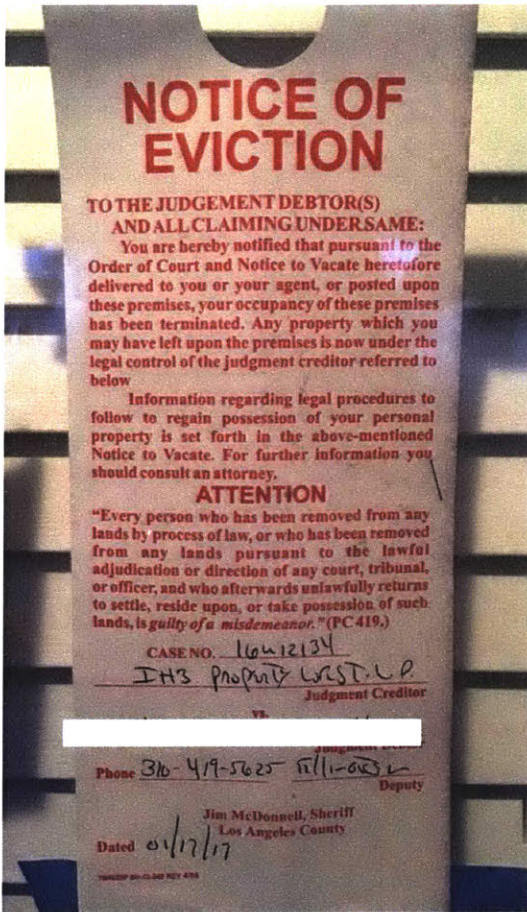 NOTICE OF
EVICTION
TO THE JUDGEMENT DEBTOR(S)
AND ALL CLAIMING UNDER SAME:
You are hereby notified that pursuant to the
Order of Court and Notice to Vacate heretofore
delivered to you or your agent, or posted upon
these premises, your occupancy of these premises
has been terminated. Any property which you
may have left upon the premises is now under the
legal control of the judgment creditor referred to
below
Information regarding legal procedures to
follow to regain possession of your personal
property is set forth in the above-mentioned
Notice to Vacate. For further information you
should consult an attorney.
ATTENTION
“Every person who has been removed from any
lands by process of law, or who has been removed
from any lands pursuant to the lawful
adjudication or direction of any court, tribunal,
or officer, and who afterwards unlawfully returns
to settle, reside upon, or take possession of such
lands, is guilty of a misdemeanor.” (PC 419.)
CASE NO.
IH3 Property West. L.P.
Judgment Creditor
vs.
Phone 310-419-5625
Deputy
Jim McDonnell, Sheriff
Los Angeles County
Dated 01/17/17